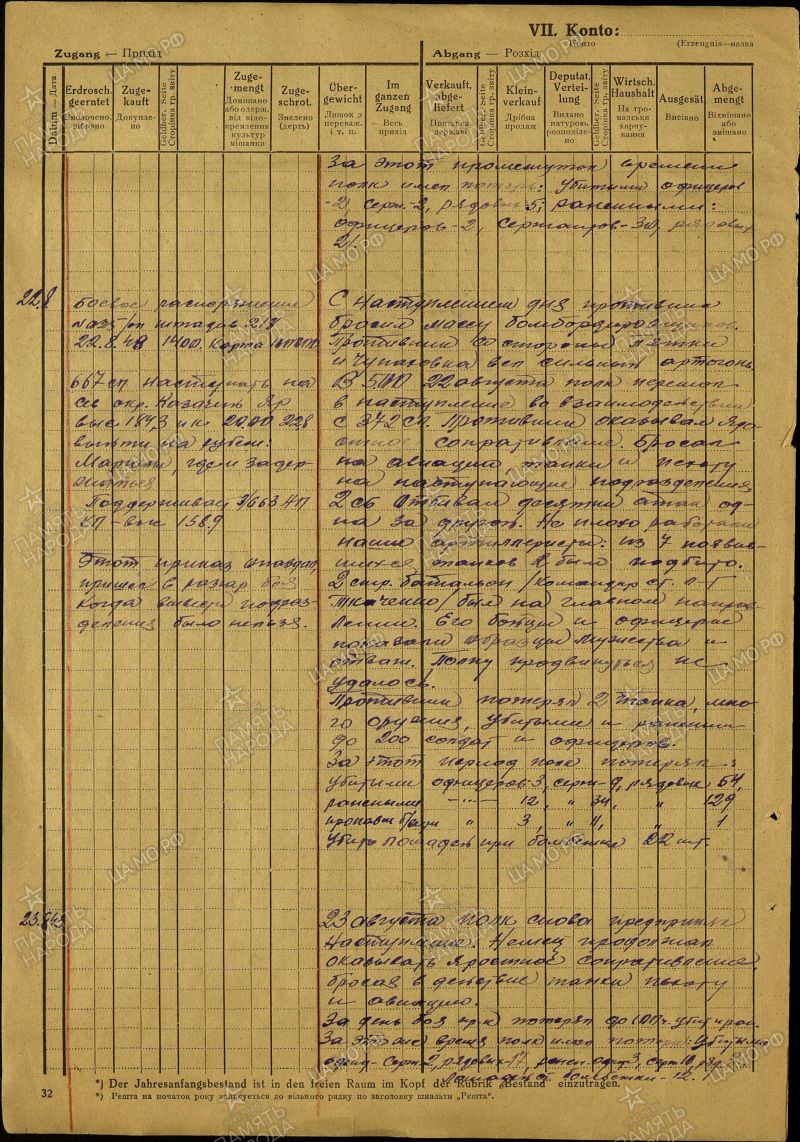 VII. Konto:
Конто (Erzeugnis—назва
Zugang — Прихід
Abgang — Розхід
Datum — Дата
Erdrosch. geerntet
Змолочено, зібрано
Zuge-kauft
Докупле-но
Geldber.-Seite
Сторінка гр. звіту
Zuge-mengt
Домішано або одерж. від відо-кремлення культур мішанки
Zuge-schrot.
Змелено (дерть)
Über-gewicht
Лишок з переваж. і т. п.
Im ganzen Zugang
— Весь прихід
Verkauft, abge-liefert
Поставка державі
Geldber.-Seite
Сторінка гр. звіту
Klein-verkauf
Дрібна продаж
Deputat, Vertei-lung
Видано натурою, розподіле-но
Geldber.-Seite
Сторінка гр. звіту
Wirtsch. Haushalt
На гро-мадське харчу-вання
Ausgesät.
Висіяно
Abge-mengt
Відмішано або змішано
За этот промежуток времени
полк имел потерь: убитыми офицеров
-2, серж.-2, рядовых 5, ранеными:
офицеров-2, Сержантов-30, рядовых
21.
22.8
Боевое распоряжение
штадив 217
22.8.43 1400. Карта
667 сп наступать на
св. окр. Казачий Яр
выс 184,3 и к
выйти на рубеж:
где и задер-
жаться
Поддерживает 3/663 АП
КП - выс 158,9
Этот приказ опоздал,
пришел в разгар боя
когда вывести подраз-
деления было нельзя.
С наступлением дня противник
бросил массу бомбардировщиков.
Противник со стороны Пятки
и Чупаховка вел сильный артогонь
В 500 22 августа полк перешел
в наступление во взаимодействии
с 372 сп. Противник оказывал яро-
стное сопротивление. Бросал
на авиацию танки и пехоту
на наступающие подразделения
2 сб отбивал десятки атак од-
на за другой. Не плохо работали
наши артиллеристы: из 7 появив-
шихся танков 2 было подбито.
2 стр. батальон /командир ст. л-т
Ткаченко/ был на главном направ-
лении. Его бойцы и офицеры
показали образцы мужества и
отваги. Полку продвинуться не
удалось.
Противник потерял 2 танка, мно-
го орудия, убитыми и ранеными
до 200 солдат и офицеров.
За этот период полк потерял:
убитыми офицеров-3, серж-9, рядовых 54,
ранеными -"- 12, " 34, " 129
пропавш б/вести " 3, " 11, " 1
Убито лошадей при бомбежке 22 шт.
23.8.43
23 августа полк снова предпринял
наступление. Немец продолжал
оказывать яростное сопротивление,
бросая в действие танки пехоту
и авиацию.
За день боя пр-к потерял до убит и ран.
За это же время полк имел потери: Убитыми
офиц- серж-2, рядовых-17, ранен. офиц 3, серж 10, ряд.
бомбежки-12.
*) Der Jahresanfangsbestand ist in den freien Raum im Kopf der Rubrik „Bestand" einzutragen.
*) Решта на початок року записується до вільного рядку по заголовку шпальти „Решта".
32
ПАМЯТЬ НАРОДА
ЦАМО.РФ